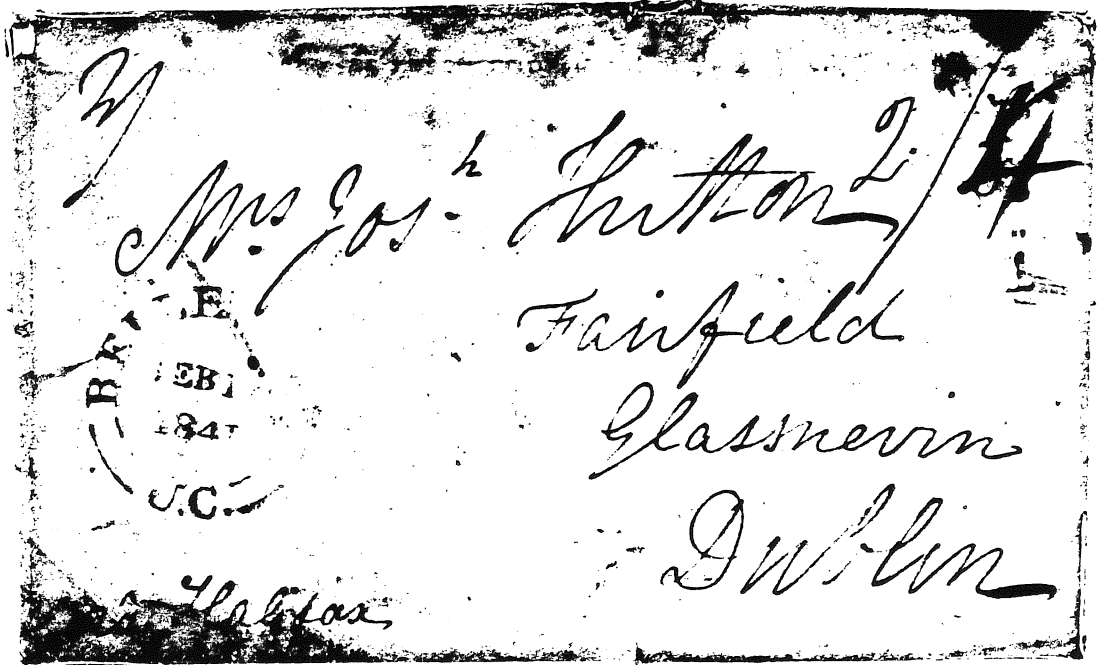 Mrs Jos.h Hutton
2/4
Fairfield
Glasnevin
Dublin
U.C.
Halifax